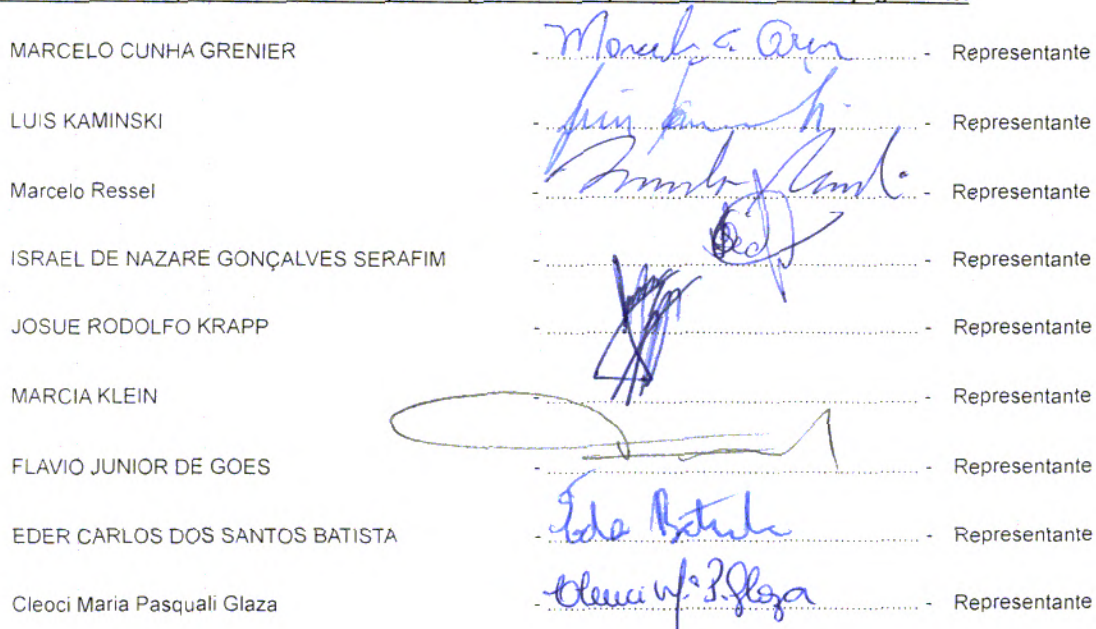 MARCELO CUNHA GRENIER - Marcelo C. Gren - Representante
LUIS KAMINSKI - Luis Kaminski - Representante
Marcelo Ressel - - Representante
ISRAEL DE NAZARE GONÇALVES SERAFIM - - Representante
JOSUE RODOLFO KRAPP - - Representante
MARCIA KLEIN - - Representante
FLAVIO JUNIOR DE GOES - - Representante
EDER CARLOS DOS SANTOS BATISTA - Eder Batista - Representante
Cleoci Maria Pasquali Glaza - Cleoci Mª P. Glaza - Representante